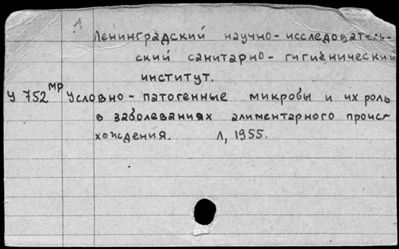 1
Ленинградский научно-исследователь-
ский санитарно-гигиенический
институт.
У 752 МР Условно-патогенные микробы и их роль
в заболеваниях алиментарного проис-
хождения. Л, 1955.